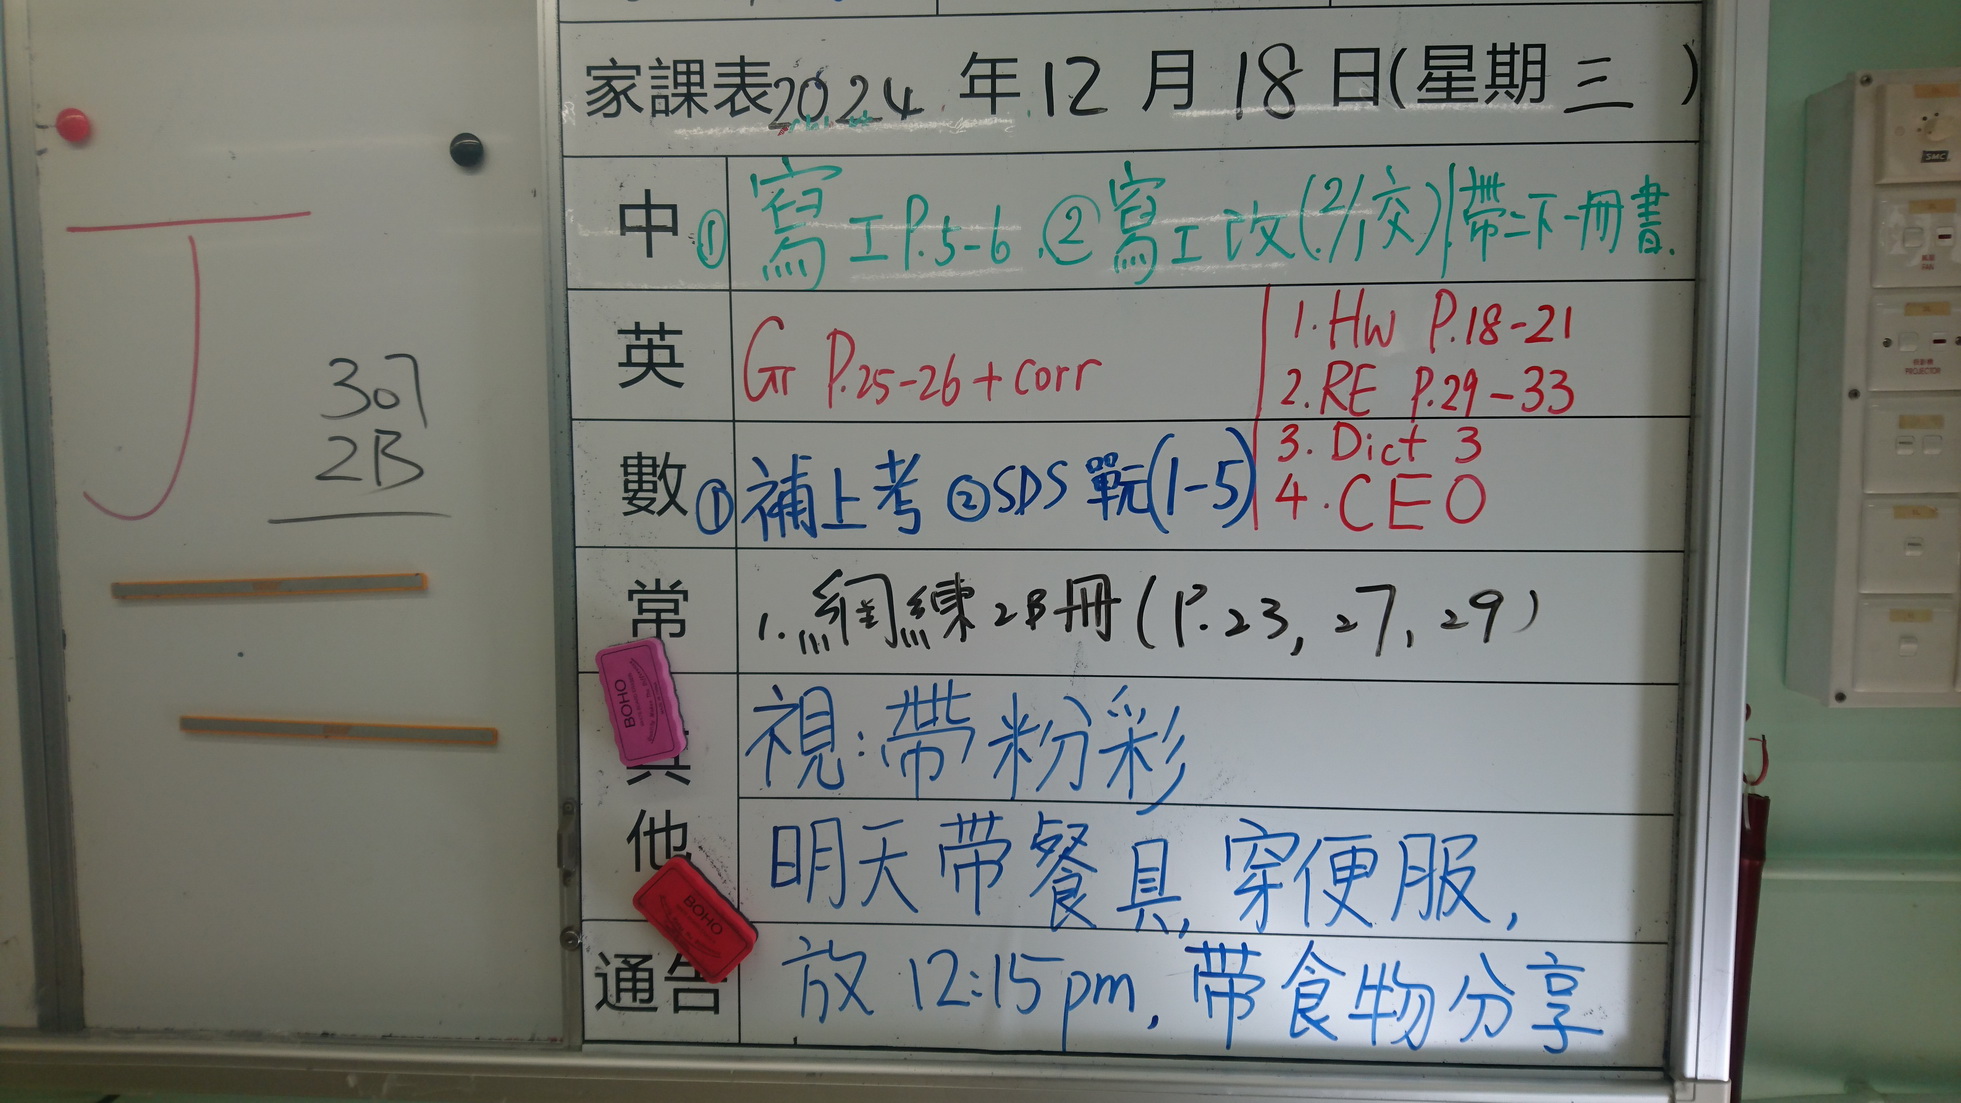 J
307
2B
家課表2024年12月18日(星期三)
中 ① 寫工P.5-6 ② 寫工改(2/1交) 帶二下一冊書.
英 Gr P.25-26+corr
1. HW P.18-21
2. RE P.29-33
3. Dict 3
4. CEO
數 ① 補上考 ② SDS (1-5)
常 1. 網練2B冊(P.23, 27, 29)
其他 視:帶粉彩
明天带餐具,穿便服,
通告 放12:15pm,带食物分享
BOHO
BOHO
SMC